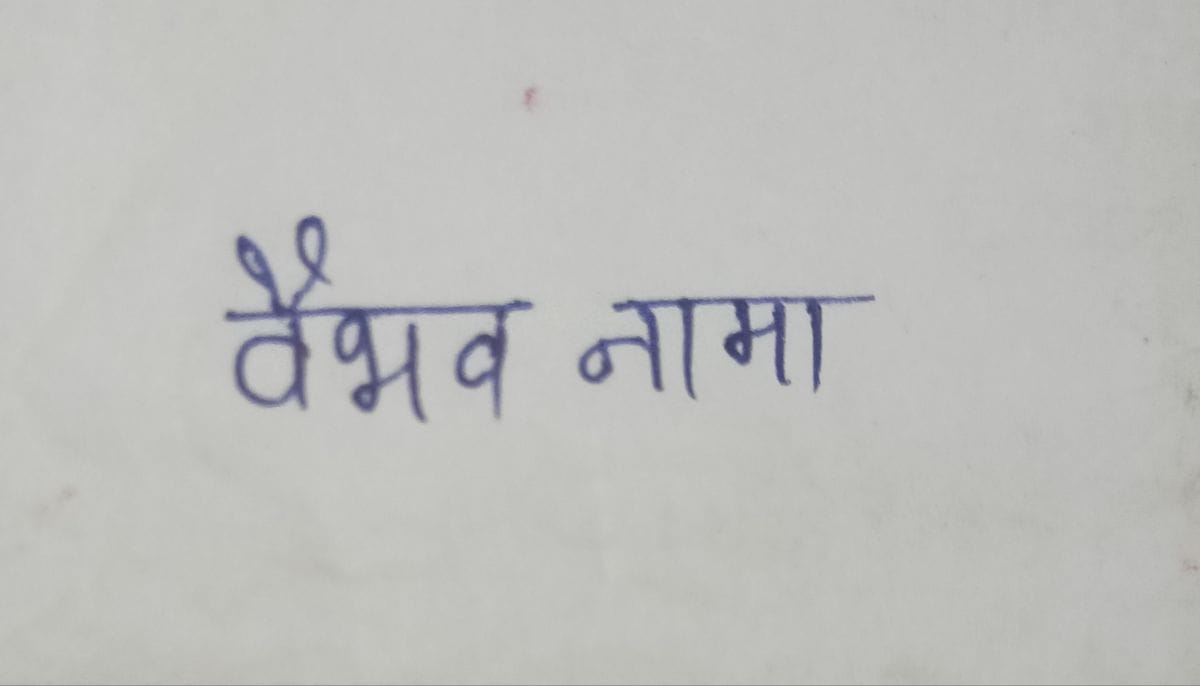 वैभव नामा